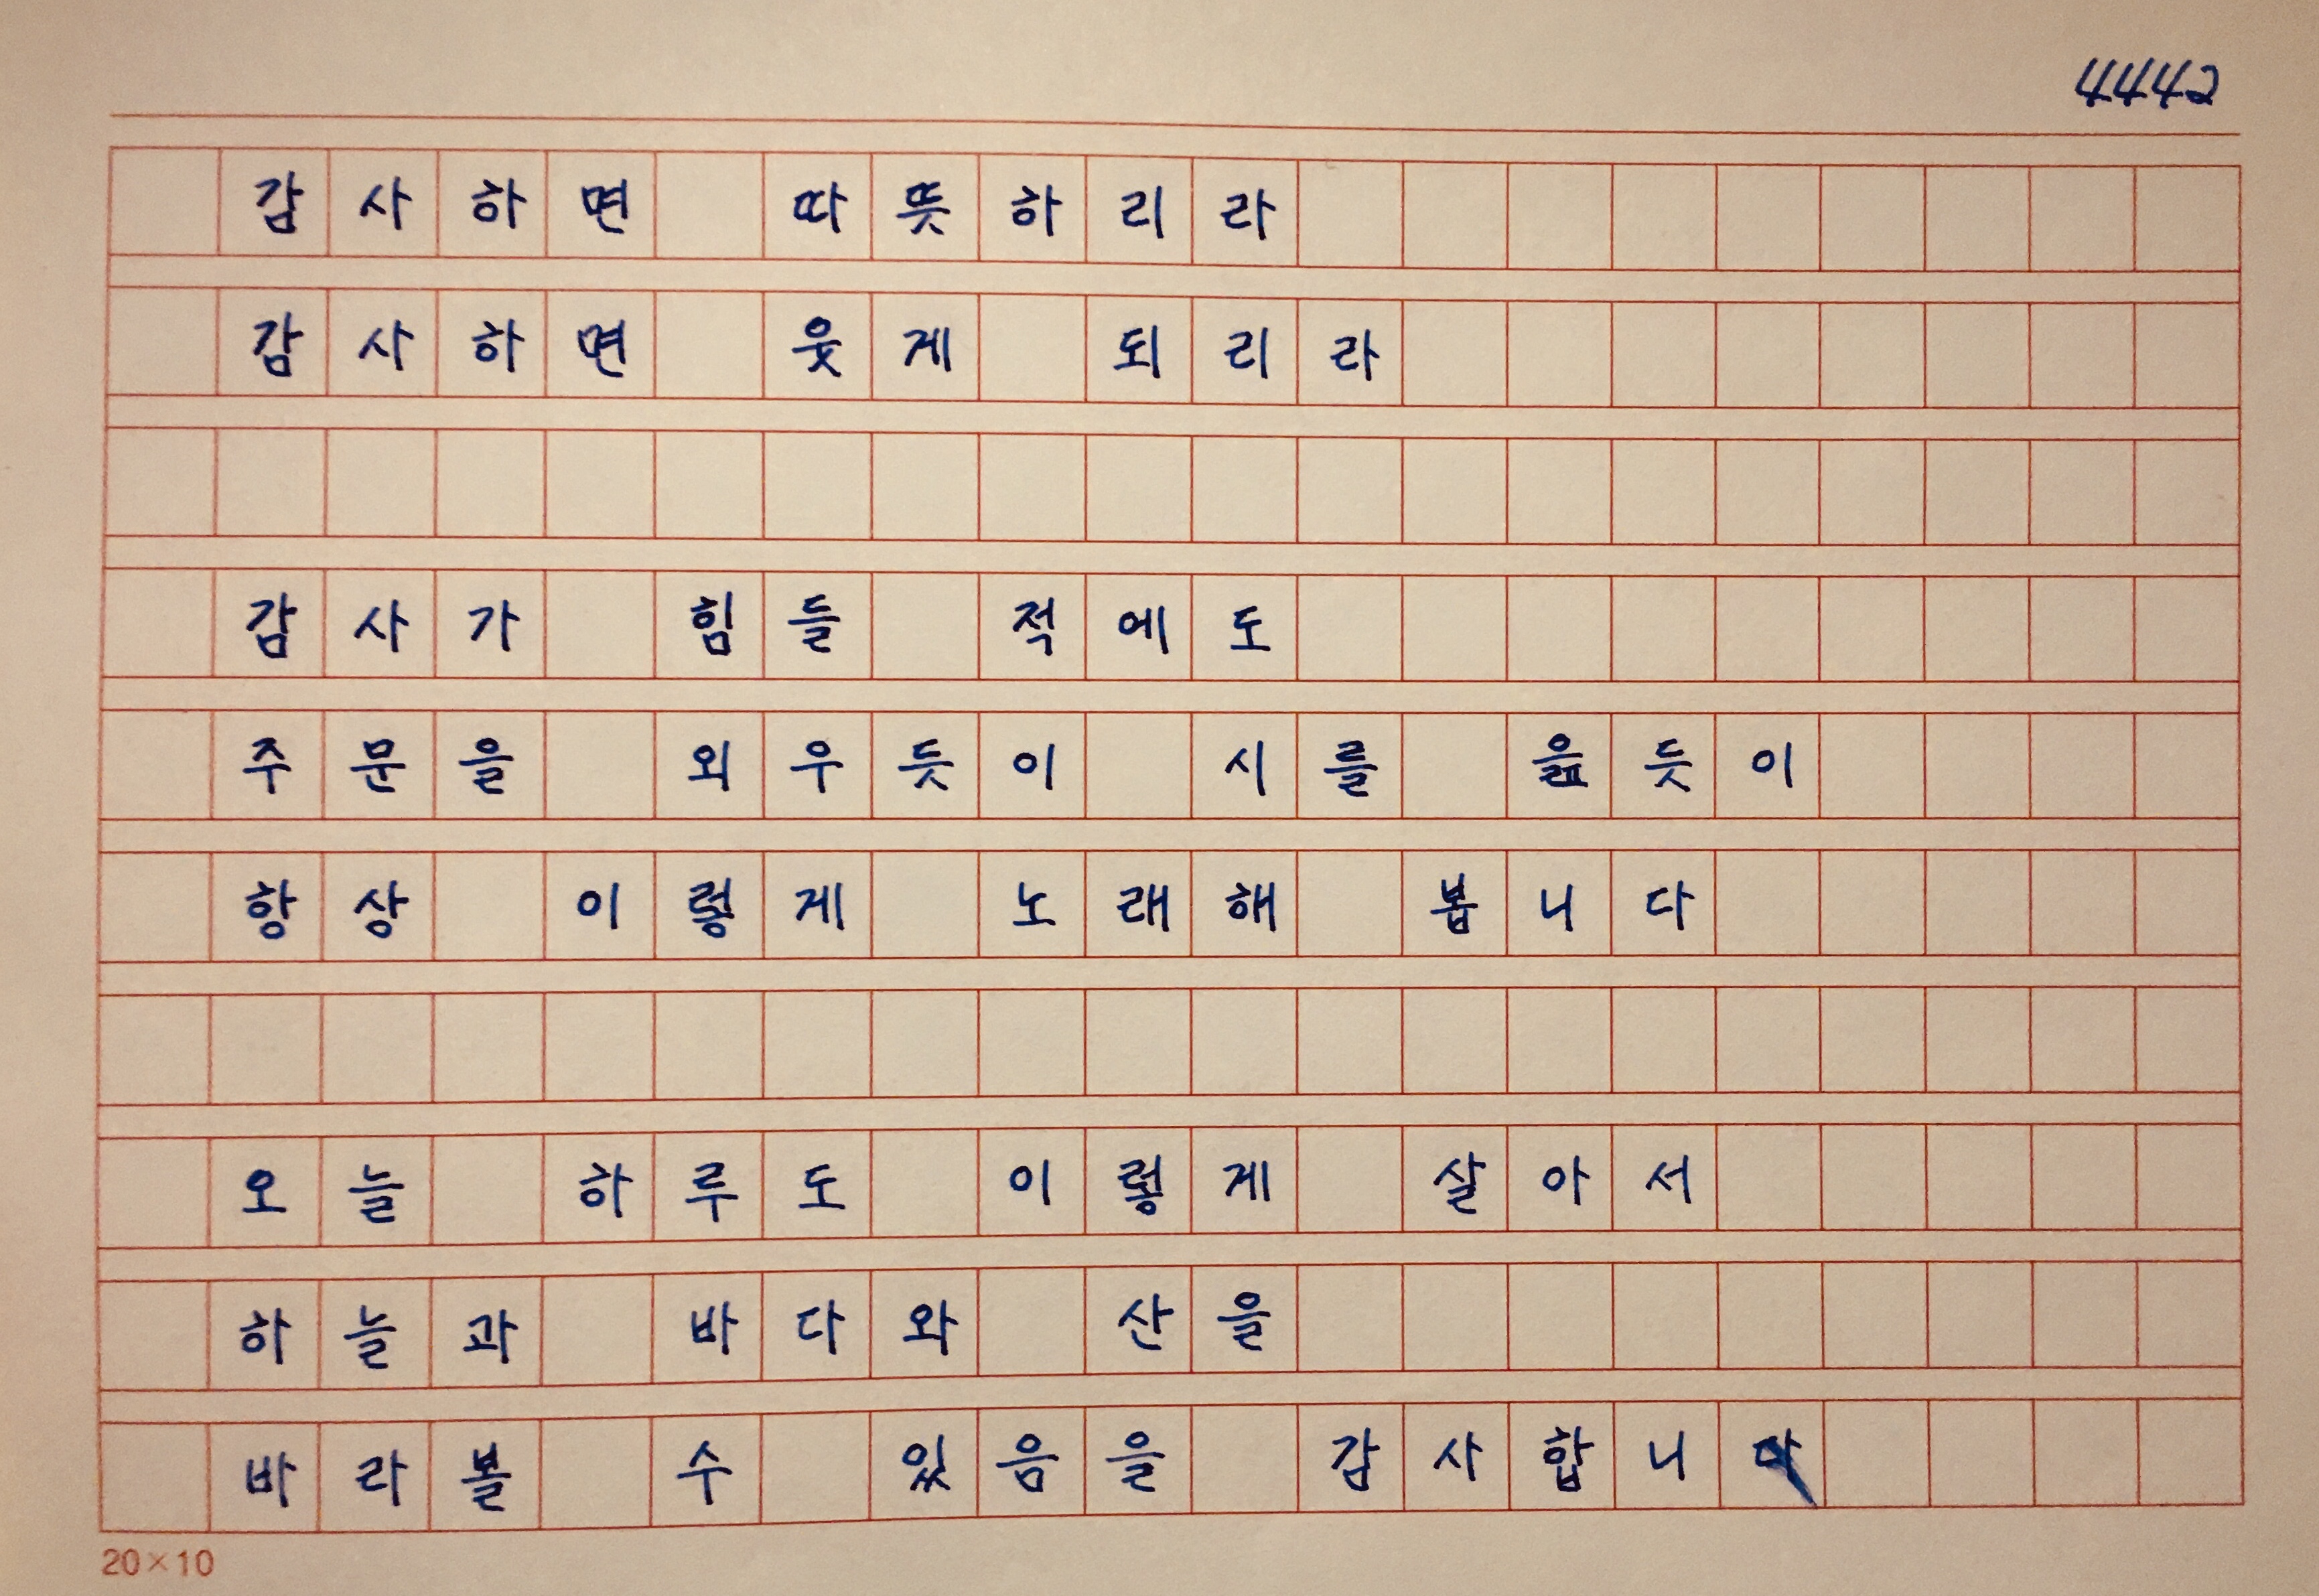 4442
감사하면 따뜻하리라
감사하면 웃게 되리라
감사가 힘들 적에도
주문을 외우듯이 시를 읊듯이
항상 이렇게 노래해 봅니다
오늘 하루도 이렇게 살아서
하늘과 바다와 산을
바라볼 수 있음을 감사합니다
20×10